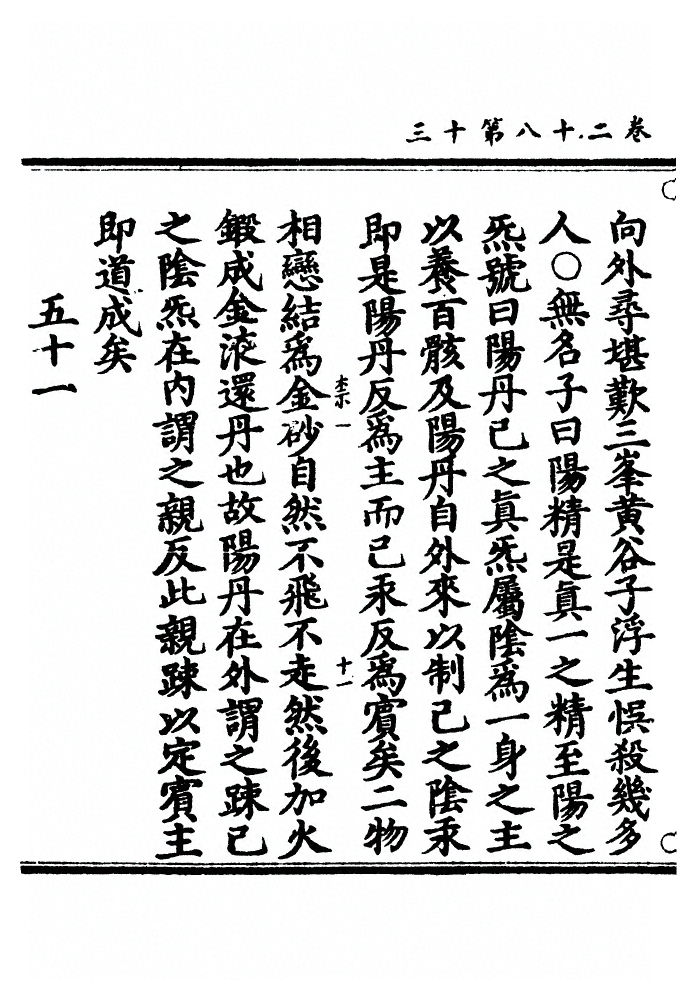 三十第八十二卷
向外尋堪歎三峯黄谷子浮生悮殺幾多
人〇無名子曰陽精是眞一之精至陽之
炁號曰陽丹己之眞炁屬陰爲一身之主
以養百骸及陽丹自外來以制己之陰汞
即是陽丹反爲主而己汞反爲賓矣二物
柰一
十一
相戀結爲金砂自然不飛不走然後加火
鍛成金液還丹也故陽丹在外謂之踈己
之陰炁在内謂之親反此親踈以定賓主
即道成矣
五十一